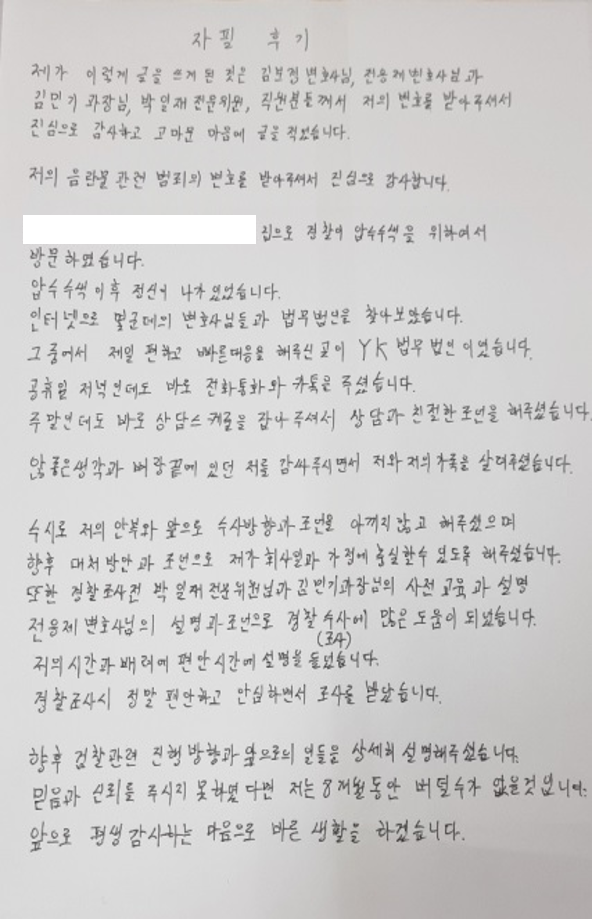 자필 후기
제가 이렇게 글을 쓰게된 것은 김보경변호사님, 전용제변호사님과
김민기 과장님, 박일재전문위원, 직원분들께서 저의 변호를 받아주셔서
진심으로 감사하고 고마운 마음에 글을 적었습니다.
저의 음란물관련 범죄의 변호를 받아주셔서 진심으로 감사합니다.
집으로 경찰이 압수수색을 위하여서
방문하였습니다.
압수수색이후 정신이 나가있었습니다.
인터넷으로 몇군데의 변호사님들과 법무법인을 찾아보았습니다.
그중에서 제일 편하고 빠른대응을 해주신 곳이 YK 법무법인이었습니다.
공휴일 저녁인데도 바로 전화통화와 카톡을 주셨습니다.
주말인데도 바로 상담스케줄을 잡아주셔서 상담과 친절한조언을 해주셨습니다.
않좋은생각과 벼랑끝에 있던 저를 감싸주시면서 저와저의가족을 살려주셨습니다.
수시로 저의 안부와 앞으로 수사방향과 조언을 아끼지않고 해주셨으며
향후 대처방안과 조언으로 제가 회사일과 가정에 충실할수 있도록 해주셨습니다.
또한 경찰조사전 박일재전문위원님과 김민기과장님의 사전교육과 설명
전용제 변호사님의 설명과조언으로 경찰수사에 많은 도움이 되었습니다.
(조사)
저의시간과 배려에 편안시간에 설명을 들었습니다.
경찰조사시 정말 편안하고 안심하면서 조사를 받았습니다.
향후 검찰관련 진행방향과 앞으로의 일들을 상세히 설명해주셨습니다.
믿음과 신뢰를 주시지 못하였다면 저는 8개월동안 버틸수가 없을것입니다.
앞으로 평생감사하는 마음으로 바른 생활을 하겠습니다.